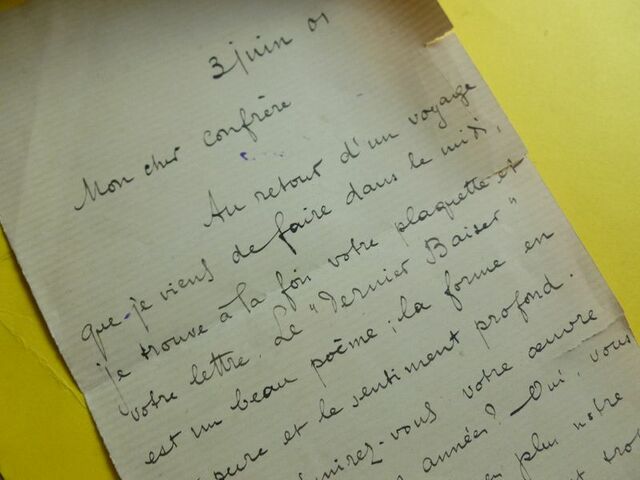 3 juin 01
Mon cher confrère
Au retour d'un voyage
que je viens de faire dans le midi,
je trouve à la fois votre plaquette et
votre lettre. Le "Dernier Baiser"
est un beau poème; la forme en
pure et le sentiment profond.
votre œuvre
années? Oui, vous
plus notre
trop